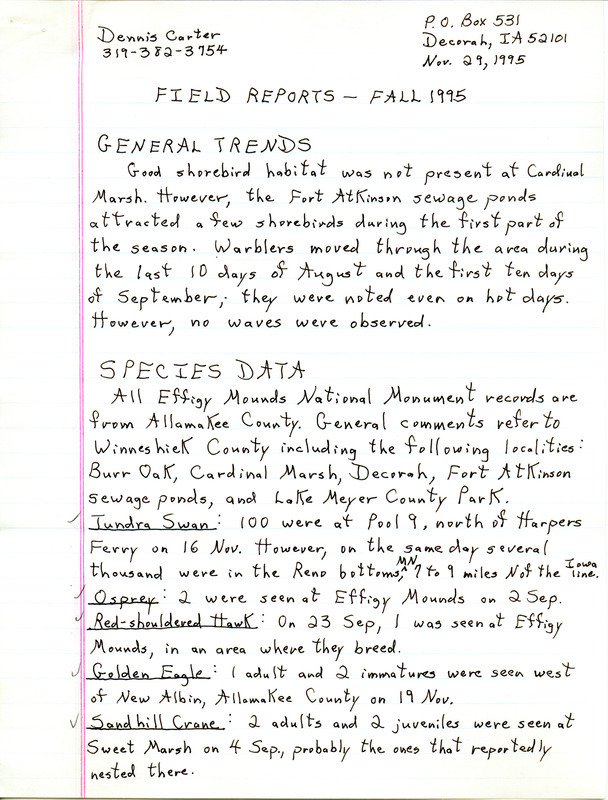 Dennis Carter
319-382-3754
P.O. Box 531
Decorah, IA 52101
Nov. 29, 1995
FIELD REPORTS – FALL 1995
GENERAL TRENDS
Good shorebird habitat was not present at Cardinal
Marsh. However, the Fort Atkinson sewage ponds
attracted a few shorebirds during the first part of
the season. Warblers moved through the area during
the last 10 days of August and the first ten days
of September; they were noted even on hot days.
However, no waves were observed.
SPECIES DATA
All Effigy Mounds National Monument records are
from Allamakee County. General comments refer to
Winneshiek County including the following localities:
Burr Oak, Cardinal Marsh, Decorah, Fort Atkinson
sewage ponds, and Lake Meyer County Park.
✓ Tundra Swan: 100 were at Pool 9, north of Harpers
Ferry on 16 Nov. However, on the same day several
thousand were in the Reno bottoms, MN 7 to 9 miles N of the Iowa line.
✓ Osprey: 2 were seen at Effigy Mounds on 2 Sep.
✓ Red-shouldered Hawk: On 23 Sep, 1 was seen at Effigy
Mounds, in an area where they breed.
✓ Golden Eagle: 1 adult and 2 immatures were seen west
of New Albin, Allamakee County on 19 Nov.
✓ Sandhill Crane: 2 adults and 2 juveniles were seen at
Sweet Marsh on 4 Sep., probably the ones that reportedly
nested there.